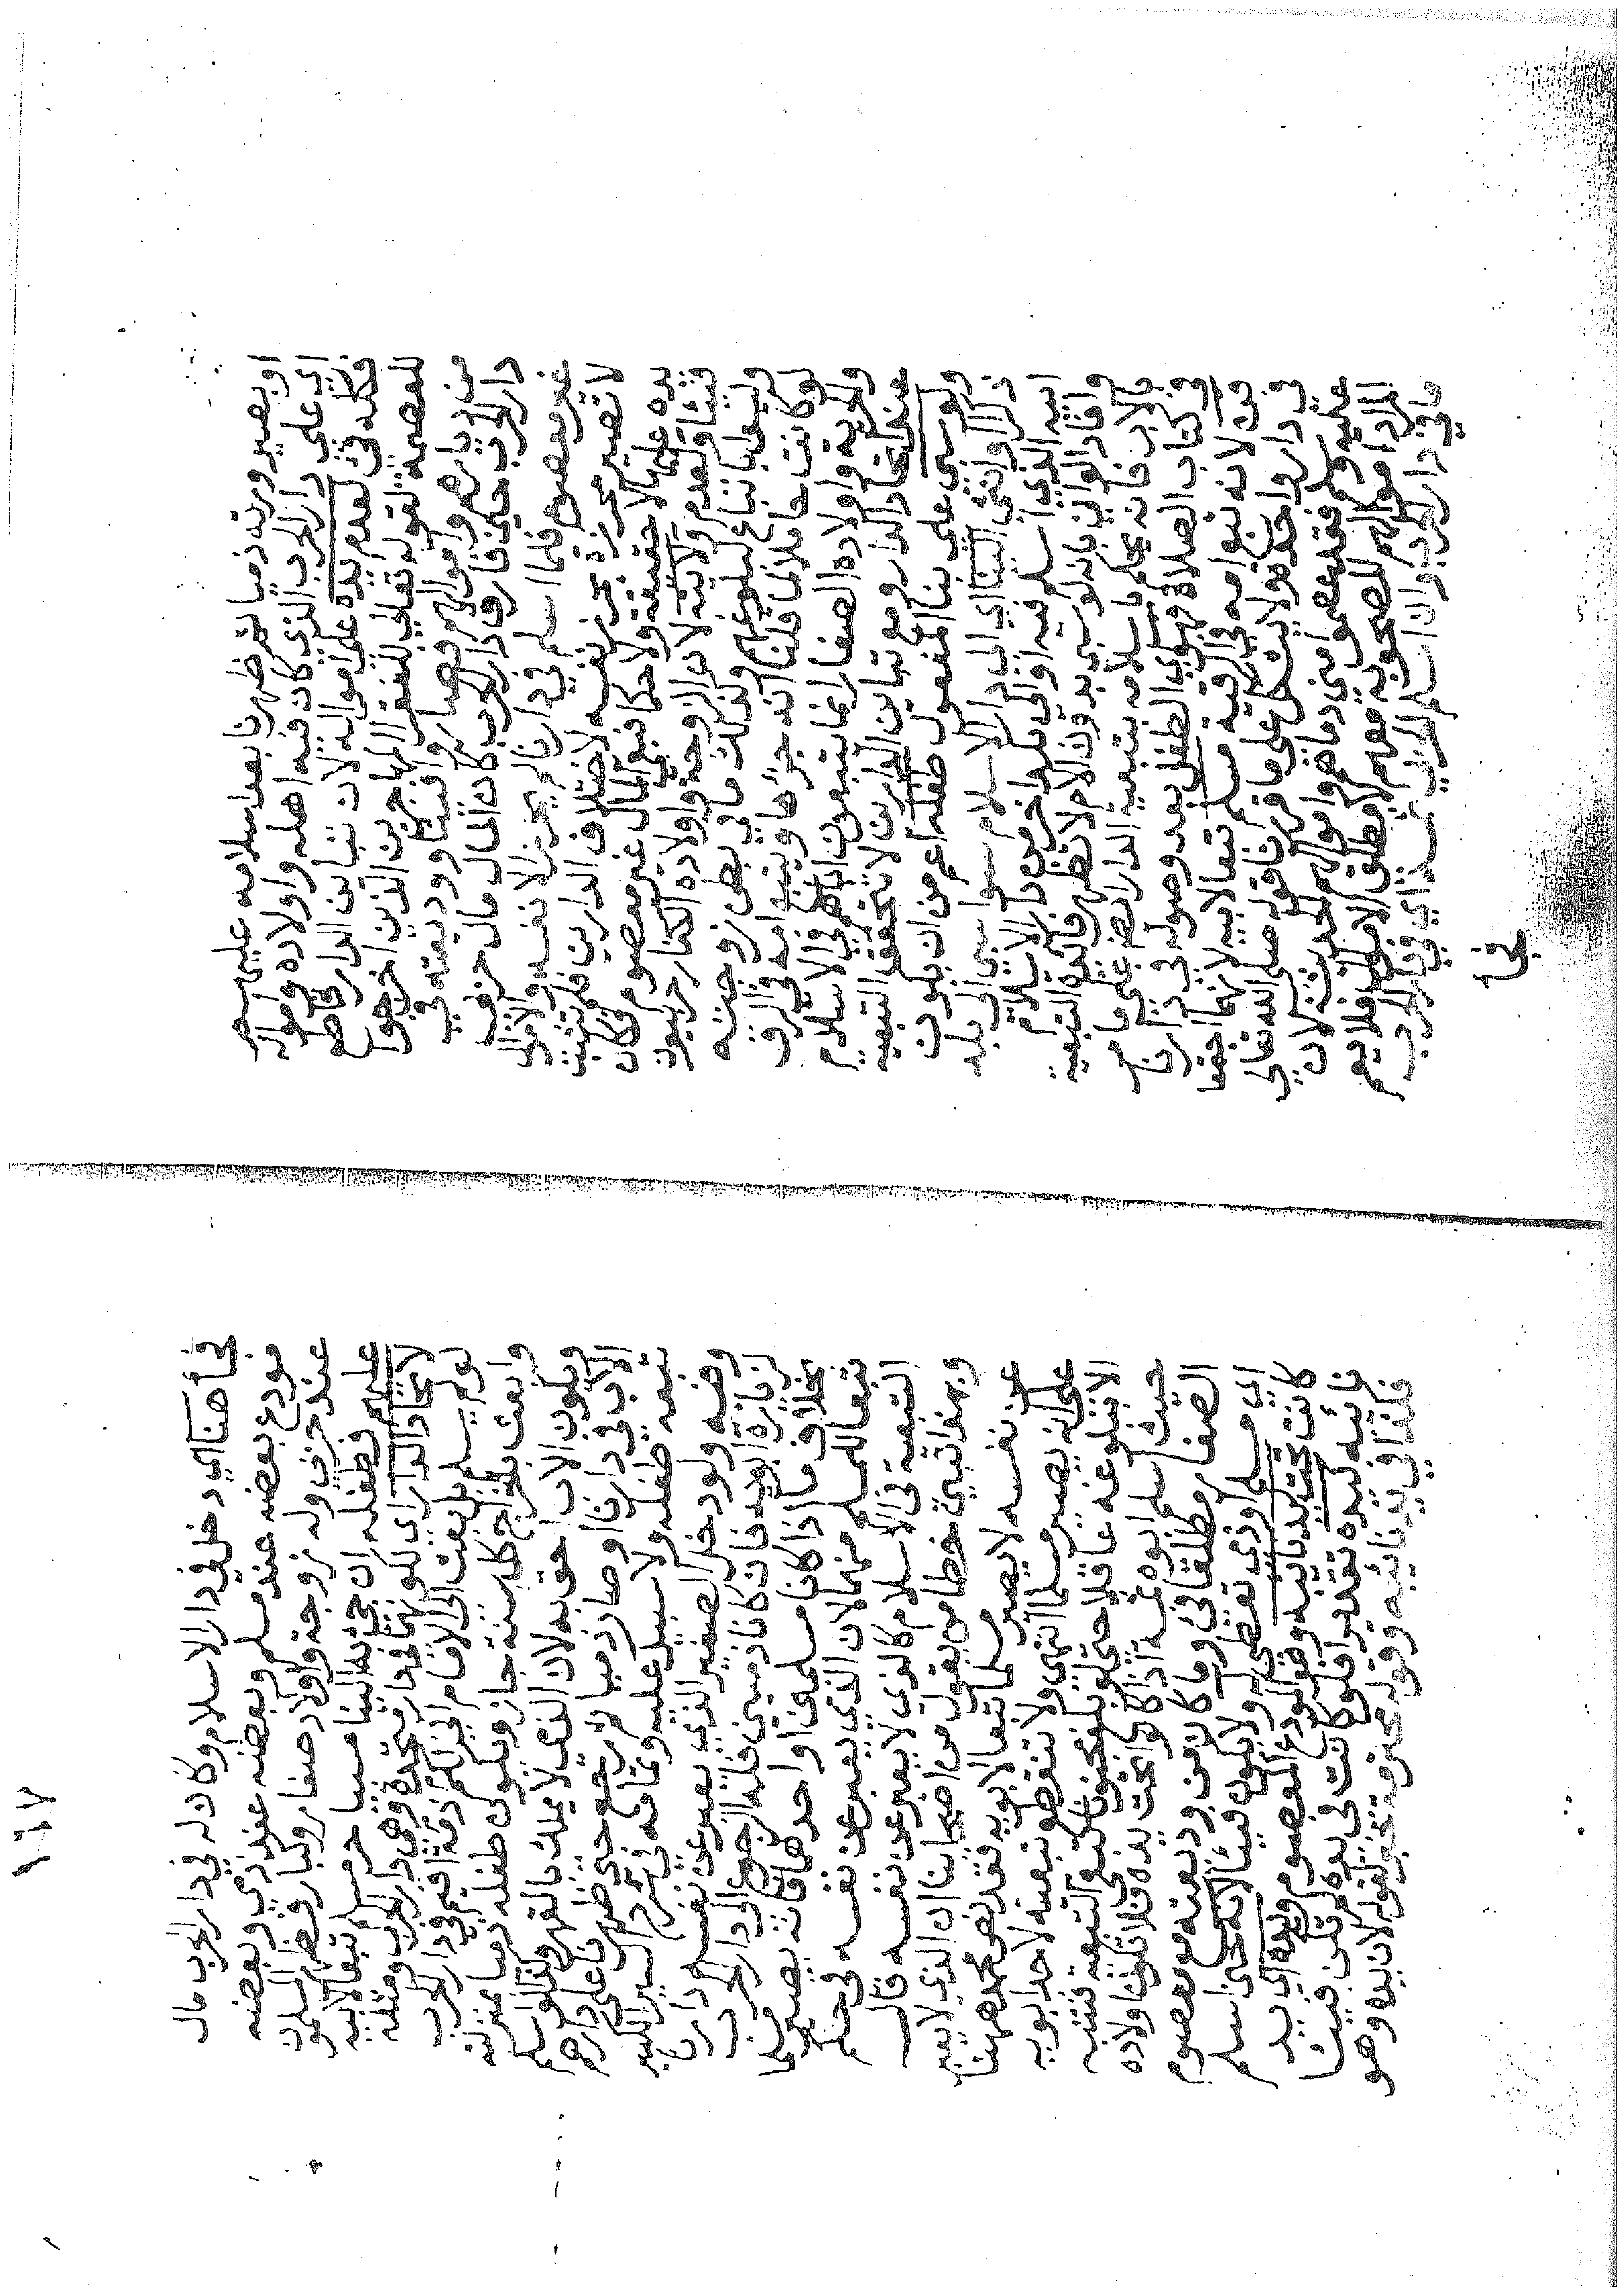 او يصير ورثته ذميا ثم ظهرنا بعد اسلامه عليهم
اي على دار الحرب الذي كان فيه اهله واولاده وامواله
فكله فيئ لعدم يده على امواله لان تباين الدار قاطع
للعصمة لقوله تعالى للفقرا المهاجرين الذين اخرجوا
من ديارهم واموالهم فصار فيئا ووديعته في
دار الحرب حين فارق دار الحرب كان المال مال حربي
غير معصوم فلما اسلم في دارنا لم يحرز الا نفسه والاموال
لا تصير محرزة بحرز نفسه لاختلاف الدارين فلم تثبت
يده عليها لا حقيقة ولا حكما فبقي المال غير معصوم فكان
فيئا ولعدم ولايته لان الزوجة واولاده الكبار حربيون
وليسوا باتباع لبلوغهم وكذلك ما في بطن زوجته
لو كانت حاملا لما قلنا انه جزؤها ويتبع امه في الرق
والحرية واولاده الصغار انما يتبعون اباهم في الاسلام
عند اتحاد الدار ومع تباين الدارين لا يتحقق التبعية
ولو سبي على بنا المفعول طفله اعم من ان يكون
ذكرا او انثى الينا اي الى دار الاسلام سوا سبي الى بلد
ابيه الذي اسلم فيه او الى بلد اخر من دار الاسلام
وافاد الواني بانه لو سبي بدون الام لا تظهر فائدة التبعية
بالاب فانه يحكم باسلامه بتبعية الدار ايضا على ما مر
في كتاب الصلاة فهو اي الطفل بعد وصوله في دارنا
قن لانه تبع امه في الرقية مسلم تبعا لابيه لانهما اجتمعا
في دار واحدة ولا يشكل على ما قررنا قوله صلى الله تعالى
عليه وسلم فقد عصموا مني دماهم واموالهم الحديث لان
المراد اموالهم المصحوبة معهم لا مطلق الاموال فلا يعم
ما في دار الحرب وان اسلم الحربي ثمة اي في دار الحرب
فجا
١٦٧
فجأ هنا اي دخل في دار الاسلام وكان له في دار الحرب مال
مودع بعضه عند مسلم وبعضه عند ذمي وبعضه
عند حربي وله زوجة واولاد صغار وكبار وظهر المسلمون
عليهم فطفله ان جئ به الينا مسبيا حر مسلم تبعا لابيه
لاتحاد الدار اي لكونهما في دار متحدة وهي دار الحرب ومثله
لو لم يسلم بل بعث الى الامام اني لكم ذمة اقيم في دار الحرب
وابعث بخراج كل سنة جاز ويكون طفله ذميا بمنزلته
ويكون الاب احق به لان الذمي لا يملك بالقهر ولو اسلم
الاب في دارنا او صار ذميا ثم رجع حتى ظهرنا على دارهم
يتبعه طفله ولا سبيل عليه وتمامه في شرح السير الكبير
وفيه ولو دخل الصغير الذي يعبر عن نفسه دارنا
لزيارة ابويه فان كانا ذميين فله الرجوع الى دار الحرب
بخلاف ما اذا كانا مسلمين او احدهما فانه يصير مسلما
تبعا للمسلم منهما لان الذي يعبر عن نفسه في حكم
التبعية في الاسلام كالذي لا يعبر عن نفسه قال
وبهذا تبين خطا من يقول من اصحابنا ان الذي لا يعبر
عن نفسه لا يصير مسلما تبعا لابويه فقد نص محمد ههنا
على انه يصير مسلما انتهى ولا تنقطع تبعيته لاحد ابويه
الا ببلوغه عاقلا حتى لو بلغ مجنونا تبقى التبعية تنبه
حيث اسلم ابوه ثمة اذا كانوا تحت يده فلا تكون اولاده
الصغار مطلقا فئ وما كان من وديعته مع معصوم
اي مسلم او ذمي تعطى له ولا يكون فيئا لانه حين اسلم
كانت تحت يد نايبه وهو المودع المعصوم ويده اي يد
نائبه ليده تقديرا فلو كانت في يده لم تكن فيئا
فكذا في يد نائبه وقوله محترمة تخبر لقوله لان يده وهو